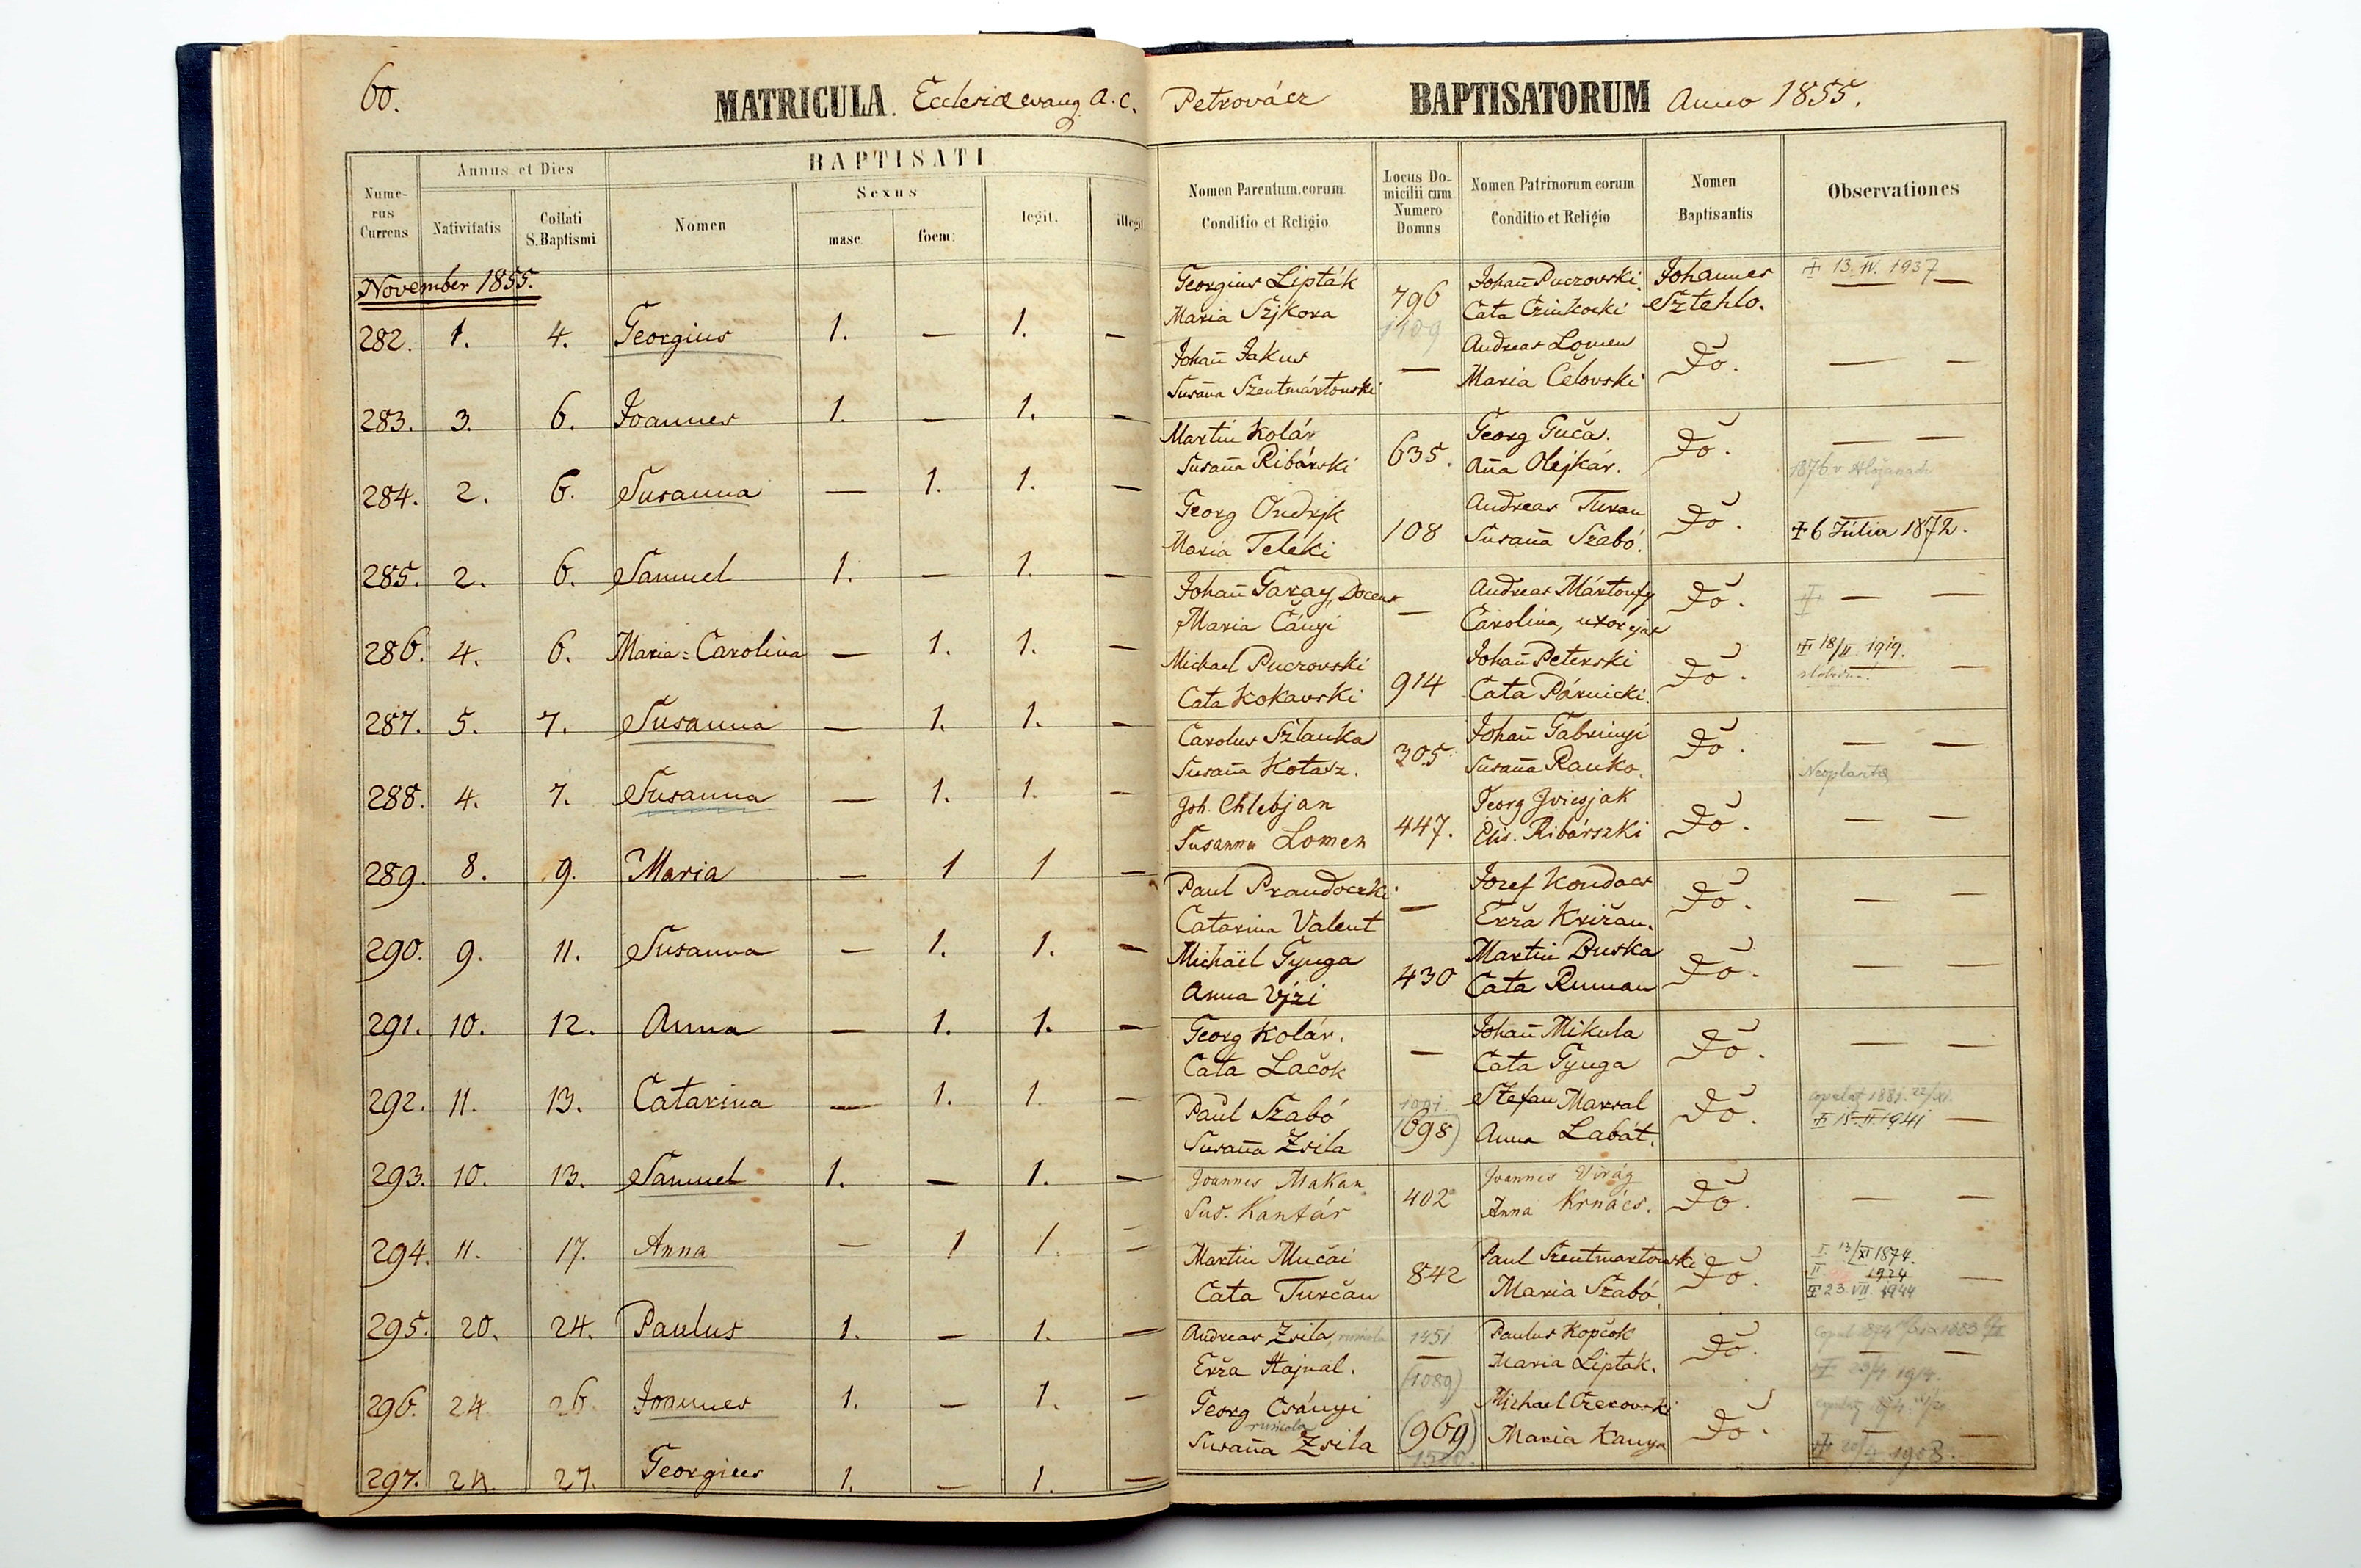 60.
MATRICULA Ecclesiæ evang. A. C. Petrovácz BAPTISATORUM Anno 1855.
Numerus Currens
Annus et Dies
Nativitatis
Collati S. Baptismi
BAPTISATI
Nomen
Sexus
masc.
foem:
legit.
illegit.
Nomen Parentum eorum Conditio et Religio
Locus Domicilii cum Numero Domus
Nomen Patrinorum eorum Conditio et Religio
Nomen Baptisantis
Observationes
November 1855.
282. 1. 4. Georgius 1. — 1. —
283. 3. 6. Joannes 1. — 1. —
284. 2. 6. Susanna — 1. 1. —
285. 2. 6. Samuel 1. — 1. —
286. 4. 6. Maria=Carolina — 1. 1. —
287. 5. 7. Susanna — 1. 1. —
288. 4. 7. Susanna — 1. 1. —
289. 8. 9. Maria — 1 1 —
290. 9. 11. Susanna — 1. 1. —
291. 10. 12. Anna — 1. 1. —
292. 11. 13. Catarina — 1. 1. —
293. 10. 13. Samuel 1. — 1. —
294. 11. 17. Anna — 1 1. —
295. 20. 24. Paulus 1. — 1. —
296. 24. 26. Joannes 1. — 1. —
297. 24. 27. Georgius 1. — 1. —
Georgius Lipták 796 Johañ Puczovski Johannes 13. IV. 1937 —
Maria Szjkora 1109 Cata Czinkocki Sztehlo.
Johañ Jakus — Andreas Lomen Do. — —
Susaña Szentmártonski Maria Čelovski
Martin Kolár 635. Georg Guča. Do. — —
Susaña Ribárski Aña Olejkár. 1876 v
Georg Ondrjk 108 Andreas Turan Do.
Maria Teleki Susaña Szabó. 6 Júlia 1872.
Johañ Garay, Docens — Andreas Mártonfy Do. — —
Maria Čányi Carolina, uxor ejus
Michael Puczovski 914 Johañ Peterski Do. 18/II 1919.
Cata Kokavski Cata Párnicki.
Carolus Szlanka 305 Johañ Fabrinyi Do. — —
Susaña Kotász. Susaña Ranko. Neoplanta
Joh. Chlebjan 447. Georg Jvicsjak Do. — —
Susanna Lomen Elis. Ribárszki
Paul Prandoczki — Jozef Kondacs Do. — —
Catarina Valent Erža Križan.
Michaël Gyuga 430 Martin Duska Do. — —
Anna Vjzi Cata Ruman
Georg Kolár. — Johañ Mikula Do. — —
Cata Lačok Cata Gyuga
Paul Szabó 1001. Stefan Marsal Do. copulat 1881. 22/XI.
Susaña Zsila (698) Anna Labát. 15-II-1941 —
Joannes Makan 402 Joannes Virág Do. — —
Sus. Kantár Anna Krnács.
Martin Mučai 842 Paul Szentmartonski Do. I. 13/XI 1874.
Cata Turčan Maria Szabó II 1924
23. VII. 1944
Andreas Zsila, rusticola 1451. Paulus Kopčok Do.
Erža Hajnal. (1089) Maria Liptak. 1914.
Georg Csányi rusticola (969) Michael Do.
Susaña Zsila Maria Kanya 1908.